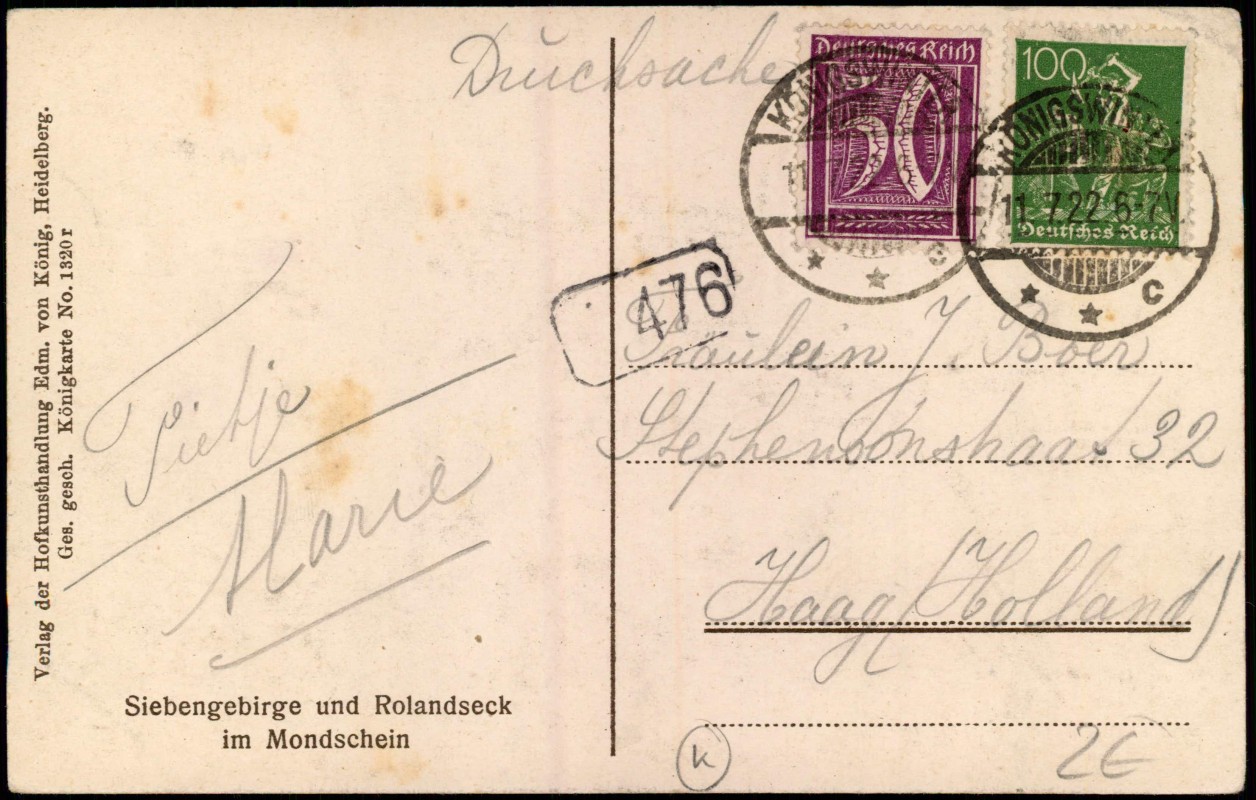 Drucksache
Deutsches Reich
50
100
Deutsches Reich
KÖNIGSW
11
KÖNIGSW
11.7.22 6-7N.
c
476
Fräulein J. Boer
Stephensonstraat 32
Haag (Holland)
Tietje
Marie
Siebengebirge und Rolandseck
im Mondschein
Verlag der Hofkunsthandlung Edm. von König, Heidelberg.
Ges. gesch. Königkarte No. 1320 r
K
2€